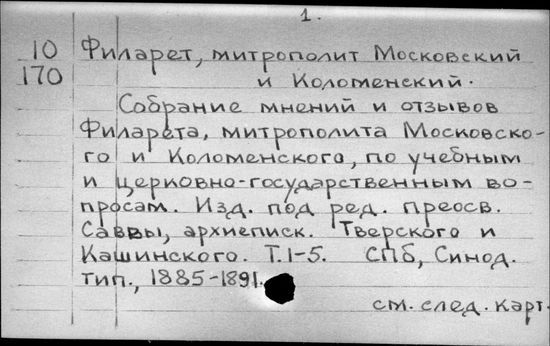 1.
10 Филарет, митрополит Московский
170 и Коломенский.
Собрание мнений и отзывов
Филарета, митрополита Московско-
го и Коломенского, по учебным
и церковно-государственным во-
просам. Изд. под ред. преосв.
Саввы, архиеписк. Тверского и
Кашинского. Т.1-5. СПб, Синод.
тип., 1885-1891.
см. след. карт.